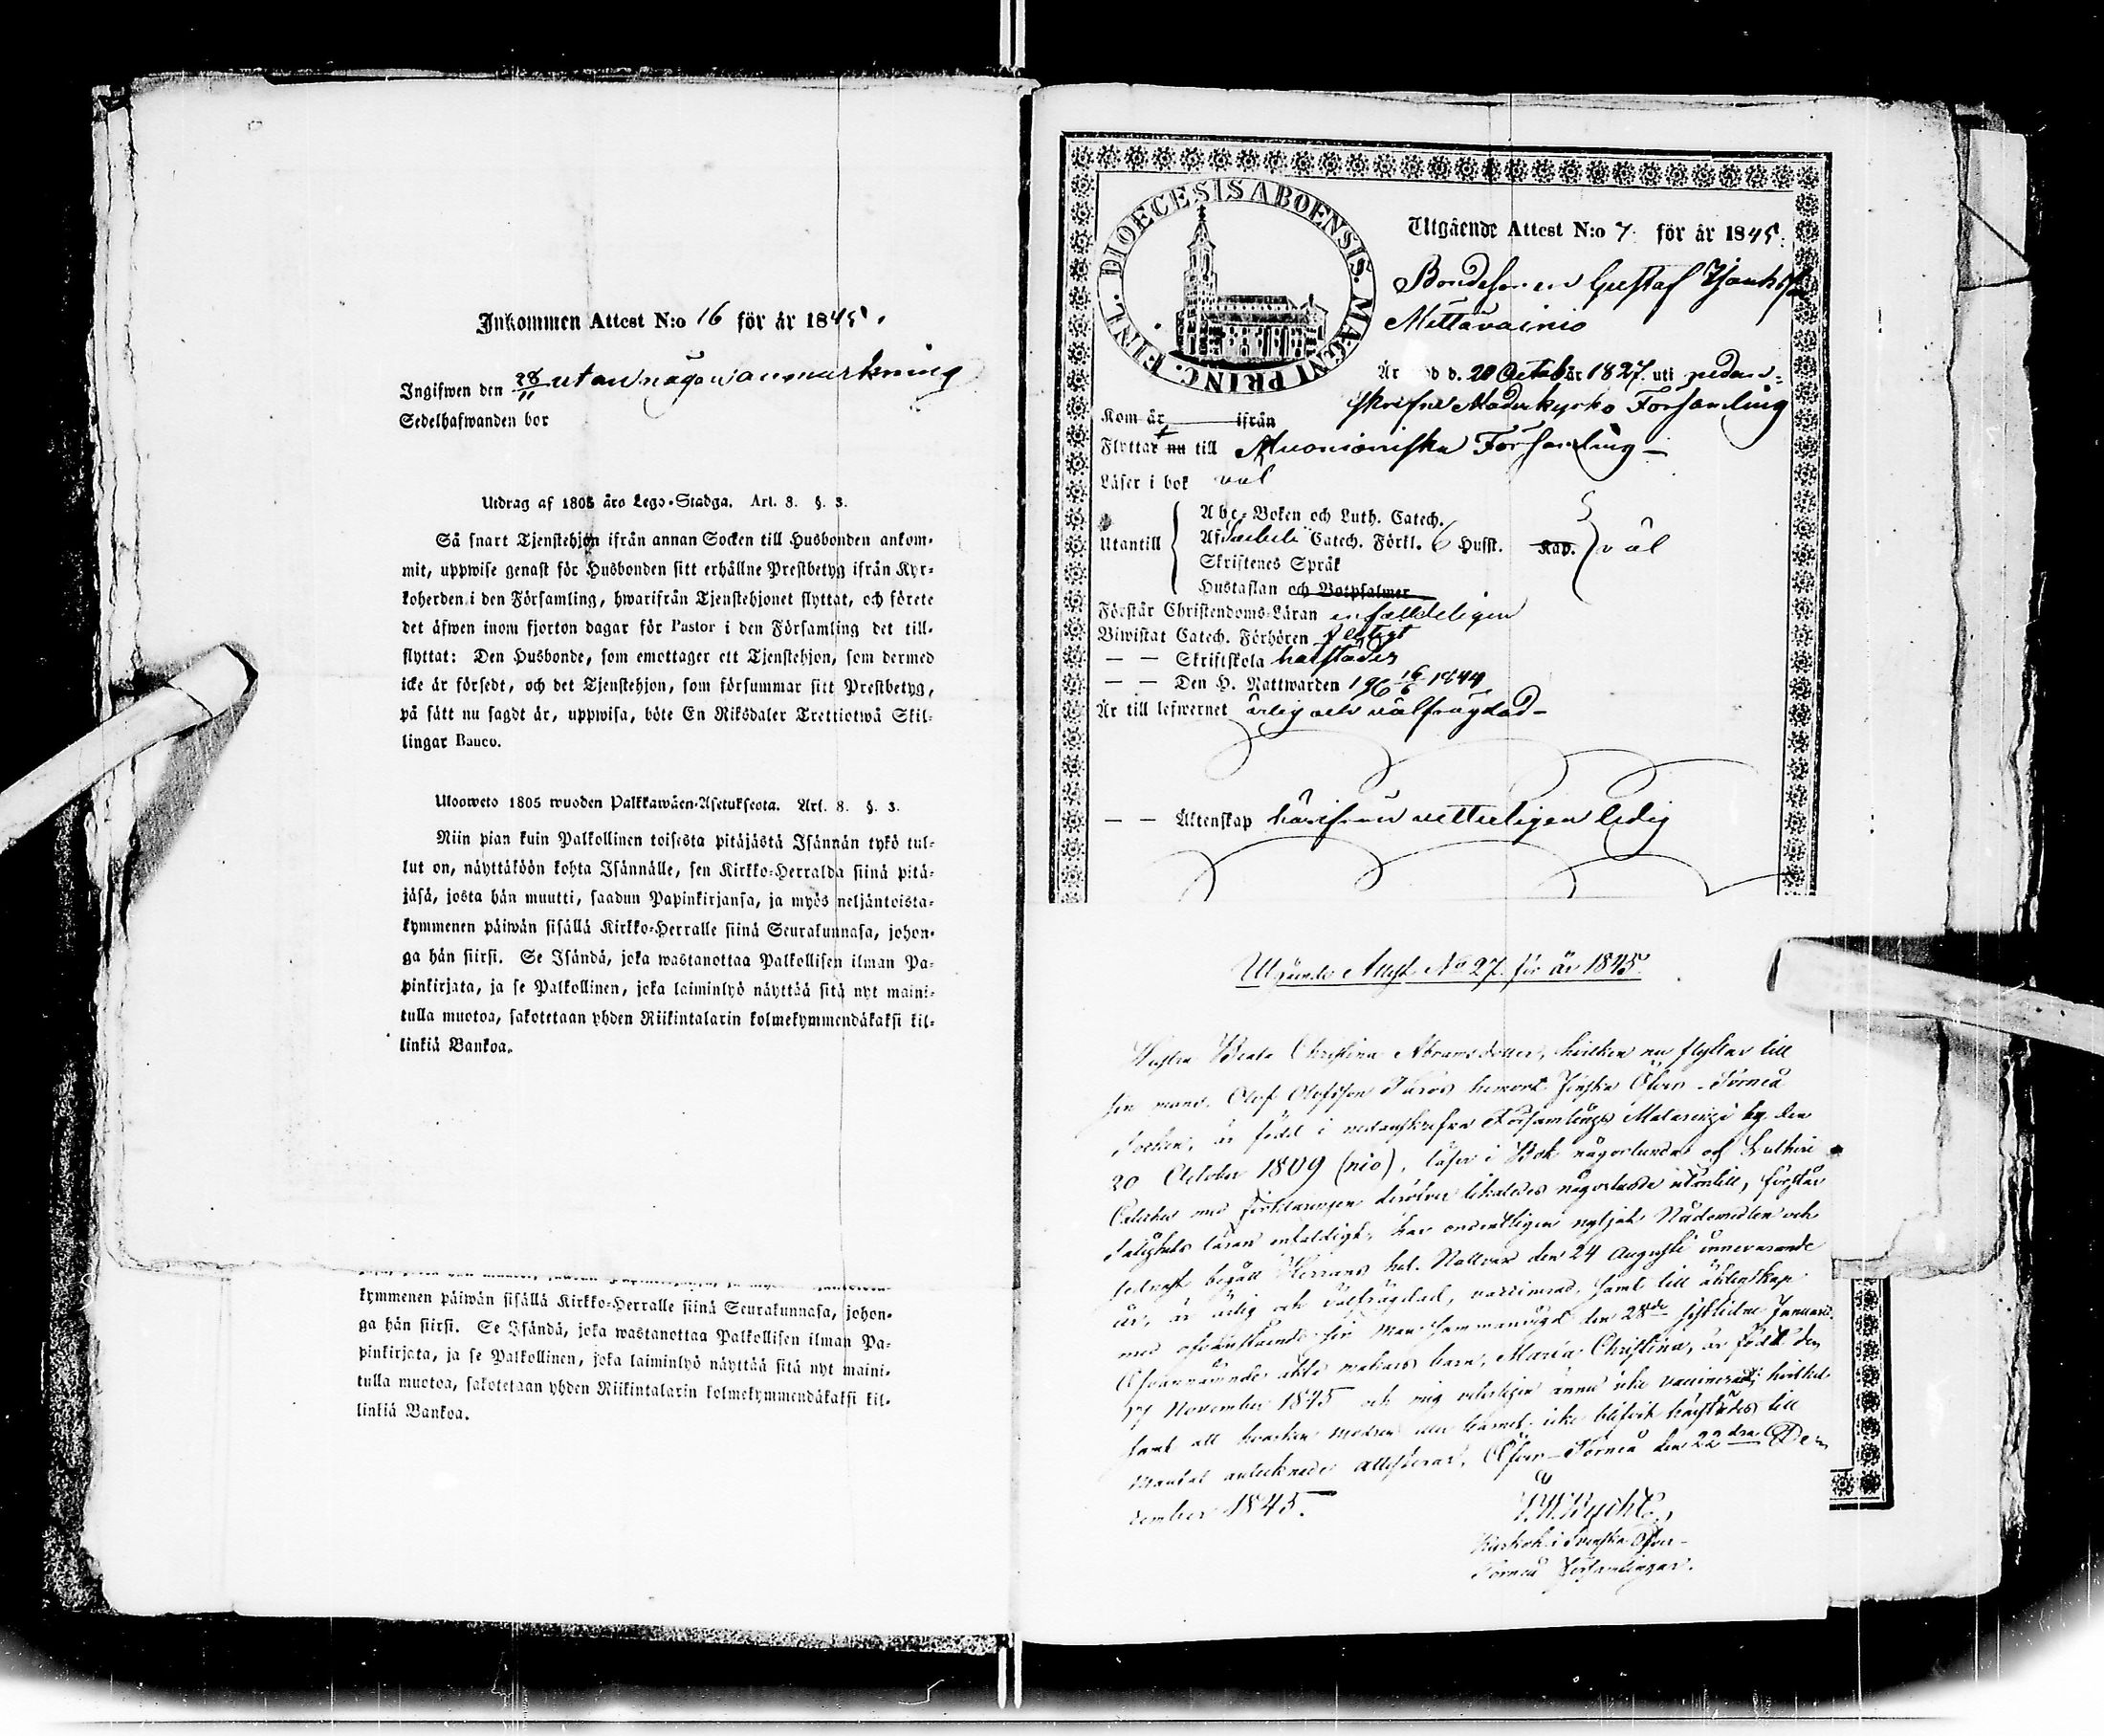 Inkommen Attest N:o 16 för år 1845.
Ingifwen den 28/11 utan någon anmärkning
Sedelhafwanden bor
Utdrag af 1805 års Lego-Stadga. Art. 8. §. 3.
Så snart Tjenstehjon ifrån annan Socken till Husbonden ankom-
mit, uppwise genast för Husbonden sitt erhållne Prestbetyg ifrån Kyr-
koherden i den Församling, hwarifrån Tjenstehjonet flyttat, och förete
det äfwen inom fjorton dagar för Pastor i den Församling det till-
flyttat: Den Husbonde, som emottager ett Tjenstehjon, som dermed
icke är försedt, och det Tjenstehjon, som försummar sitt Prestbetyg,
på sätt nu sagdt är, uppwisa, böte En Riksdaler Trettiotwå Skil-
lingar Banco.
Uloosweto 1805 wuoden Palkkawäen-Asetuksesta. Art. 8. §. 3.
Niin pian kuin Palkollinen toisesta pitäjästä Isännän tykö tul-
lut on, näyttäköön kohta Isännälle, sen Kirkko-Herralda siinä pitä-
jäsä, josta hän muutti, saadun Papinkirjansa, ja myös neljäntoista-
kymmenen päiwän sisällä Kirkko-Herralle siinä Seurakunnasa, johon-
ga hän siirsi. Se Isändä, joka wastanottaa Palkollisen ilman Pa-
pinkirjata, ja se Palkollinen, joka laiminlyö näyttää sitä nyt maini-
tulla muotoa, sakotetaan yhden Riikintalarin kolmekymmendäkaksi kil-
linkiä Bankoa.
kymmenen päiwän sisällä Kirkko-Herralle siinä Seurakunnasa, johon-
ga hän siirsi. Se Isändä, joka wastanottaa Palkollisen ilman Pa-
pinkirjata, ja se Palkollinen, joka laiminlyö näyttää sitä nyt maini-
tulla muotoa, sakotetaan yhden Riikintalarin kolmekymmendäkaksi kil-
linkiä Bankoa.
DIOECESIS ABOENSIS. MAGNI PRINC. FINL.
Utgående Attest N:o 7. för år 1845.
Bondesonen Gustaf
Mettävainio
Är d d. 20 Octob år 1827. uti nedan-
skrefne Moderkyrko Församling
Kom år ifrån
Flyttar nu till Muonioniska Församling
Läser i bok väl
Utantill
Abc-Boken och Luth. Catech.
Catech. Förkl. 6 Husst. Kap. väl
Skriftenes Språk
Hustaflan och Botpsalmer
Förstår Christendoms-Läran enfaldeligen
Biwistat Catech. Förhören flitigt
— — Skriftskola härstädes
— — Den H. Nattwarden 16/6 1844
Är till lefwernet ärlig och välfrägdad
— — Äktenskap härifrån vetterligen ledig
Utgående Attest No 27. för år 1845.
Hustru Beata Christina Abramsdotter, hvilken nu flyttar till
sin man, Olof Olofsson hemort Finska Öfver-Torneå
Socken, är född i nedanskrefna Församlings Matarengi by den
20 October 1809 (nio), läser i Bok någorlunda och Lutheri
Cateches med förklaringen deröfver likaledes någorlunda utantill, förstår
Salighets läran enfaldigt, har ordentligen nyttjat Nådemedlen och
sednast begått Herrans hel. Nattvar den 24 Augusti innevarande
år, är ärlig och välfrägdad, vaccinerad, samt till äktenskap
med ofvanstående sin man sammanvigd den 28de sistlidne Januarii.
Ofvannämnde äkta makars barn, Maria Christina, är född den
17 November 1845 och mig veterligen ännu icke vaccinerad; hvilket
samt att hvarken modren eller barnet icke blifvit härstädes till
Mantal antecknade attesterar, Öfver-Torneå den 22dra De-
cember 1845.
i Svenska Öfver-
Torneå Församlingar.